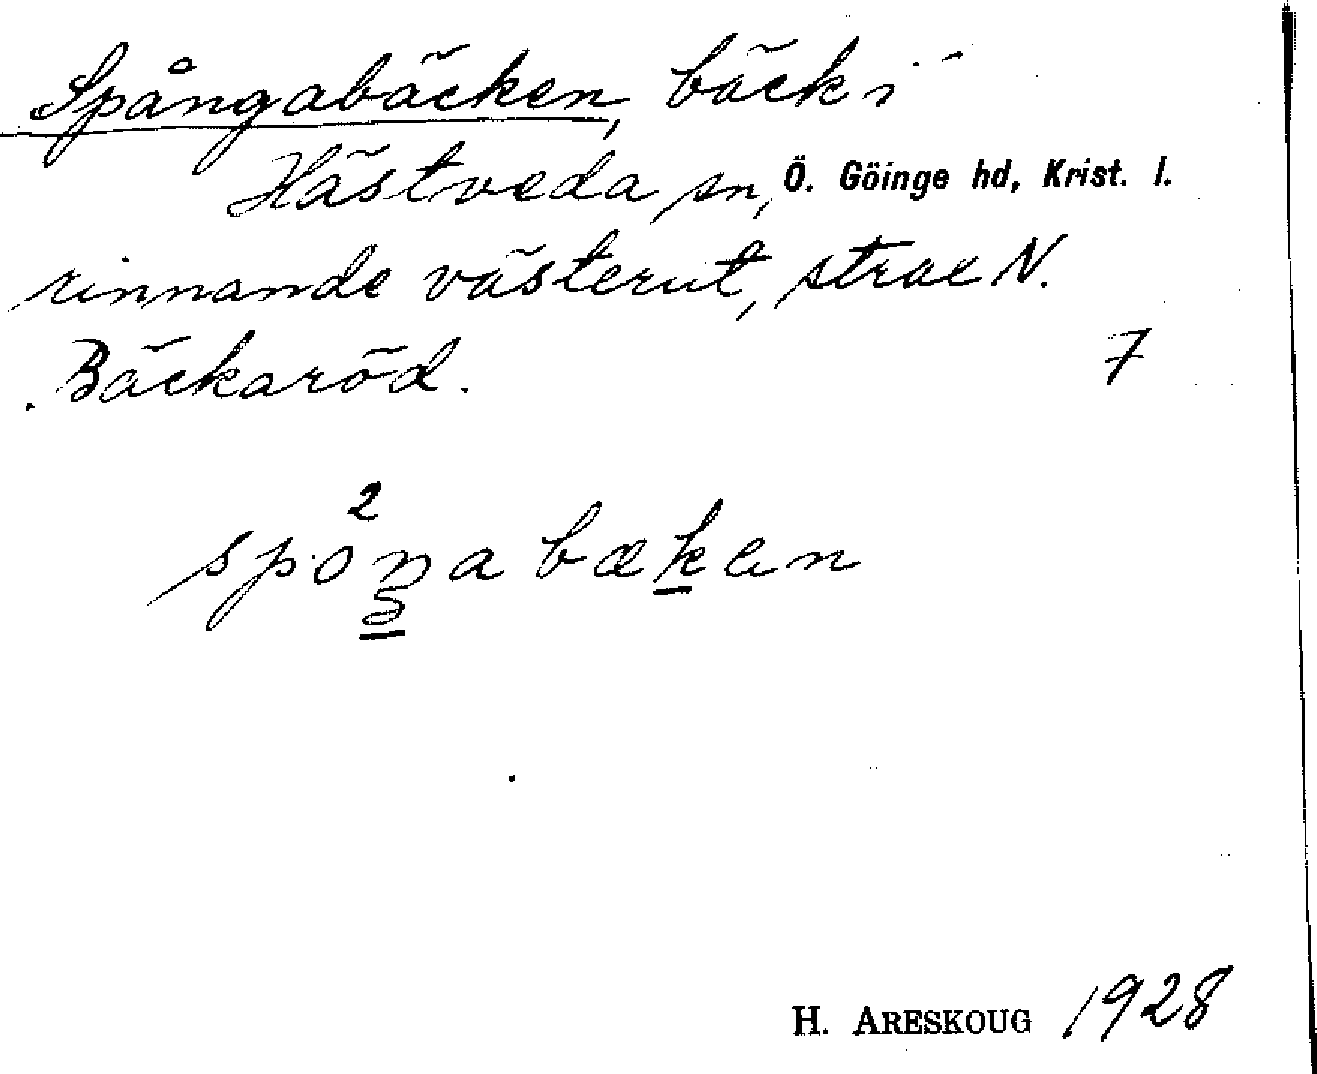 Spångabäcken, bäck i
Hästveda sn, Ö. Göinge hd, Krist. l.
rinnande västerut, strax N.
Bäckaröd. 7
2
spoŋabækan
H. ARESKOUG 1928